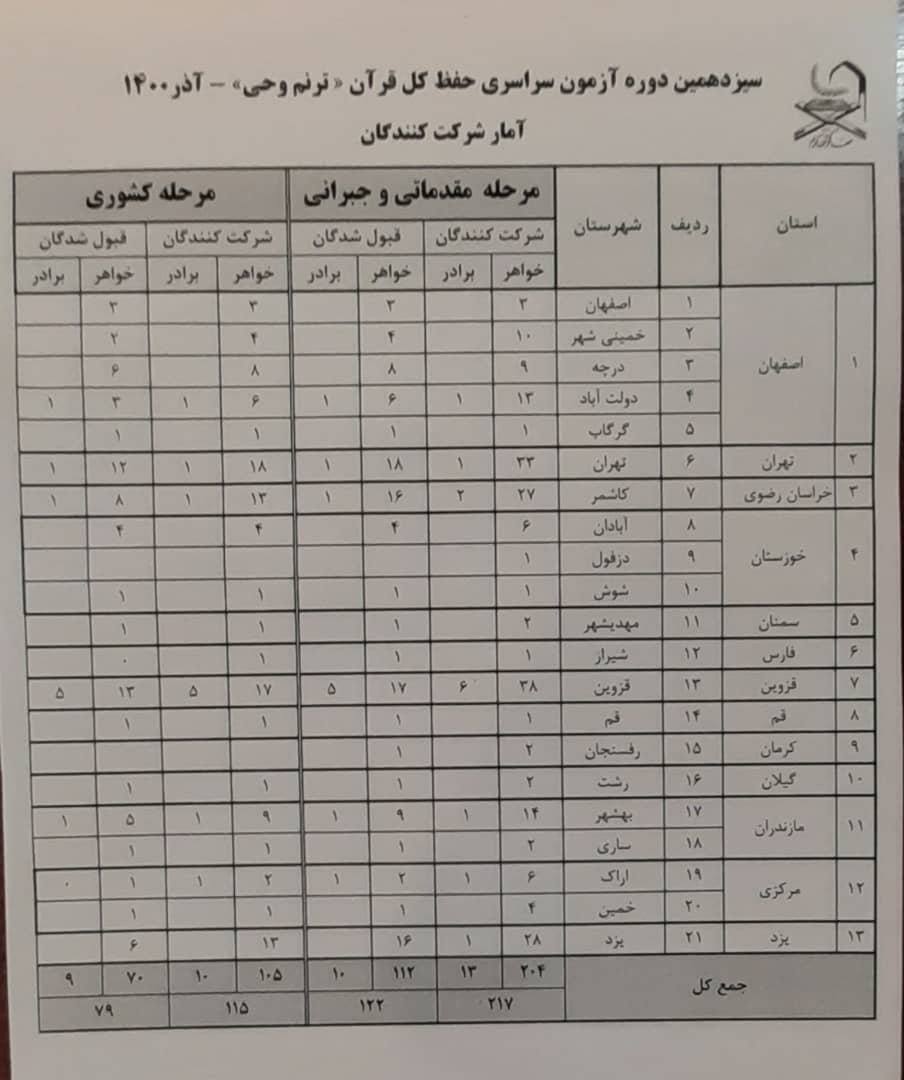 سیزدهمین دوره آزمون سراسری حفظ کل قرآن «ترنم وحی» – آذر ۱۴۰۰
آمار شرکت کنندگان
استان ردیف شهرستان مرحله مقدماتی و جبرانی مرحله کشوری
شرکت کنندگان قبول شدگان شرکت کنندگان قبول شدگان
خواهر برادر خواهر برادر خواهر برادر خواهر برادر
۱ اصفهان ۱ اصفهان ۳ ۳ ۳ ۳
۲ خمینی شهر ۱۰ ۴ ۴ ۲
۳ درچه ۹ ۸ ۸ ۶
۴ دولت آباد ۱۳ ۱ ۶ ۱ ۶ ۱ ۳ ۱
۵ گرگاب ۱ ۱ ۱ ۱
۲ تهران ۶ تهران ۳۳ ۱ ۱۸ ۱ ۱۸ ۱ ۱۲ ۱
۳ خراسان رضوی ۷ کاشمر ۲۷ ۲ ۱۶ ۱ ۱۳ ۱ ۸ ۱
۴ خوزستان ۸ آبادان ۶ ۴ ۴ ۴
۹ دزفول ۱
۱۰ شوش ۱ ۱ ۱ ۱
۵ سمنان ۱۱ مهدیشهر ۲ ۱ ۱ ۱
۶ فارس ۱۲ شیراز ۱ ۱ ۱ ۰
۷ قزوین ۱۳ قزوین ۳۸ ۶ ۱۷ ۵ ۱۷ ۵ ۱۳ ۵
۸ قم ۱۴ قم ۱ ۱ ۱ ۱
۹ کرمان ۱۵ رفسنجان ۲ ۱
۱۰ گیلان ۱۶ رشت ۲ ۱ ۱ ۱
۱۱ مازندران ۱۷ بهشهر ۱۴ ۱ ۹ ۱ ۹ ۱ ۵ ۱
۱۸ ساری ۲ ۱ ۱ ۱
۱۲ مرکزی ۱۹ اراک ۶ ۱ ۲ ۱ ۲ ۱ ۱ ۰
۲۰ خمین ۴ ۱ ۱ ۱
۱۳ یزد ۲۱ یزد ۲۸ ۱ ۱۶ ۱۳ ۶
جمع کل ۲۰۴ ۱۳ ۱۱۲ ۱۰ ۱۰۵ ۱۰ ۷۰ ۹
۲۱۷ ۱۲۲ ۱۱۵ ۷۹